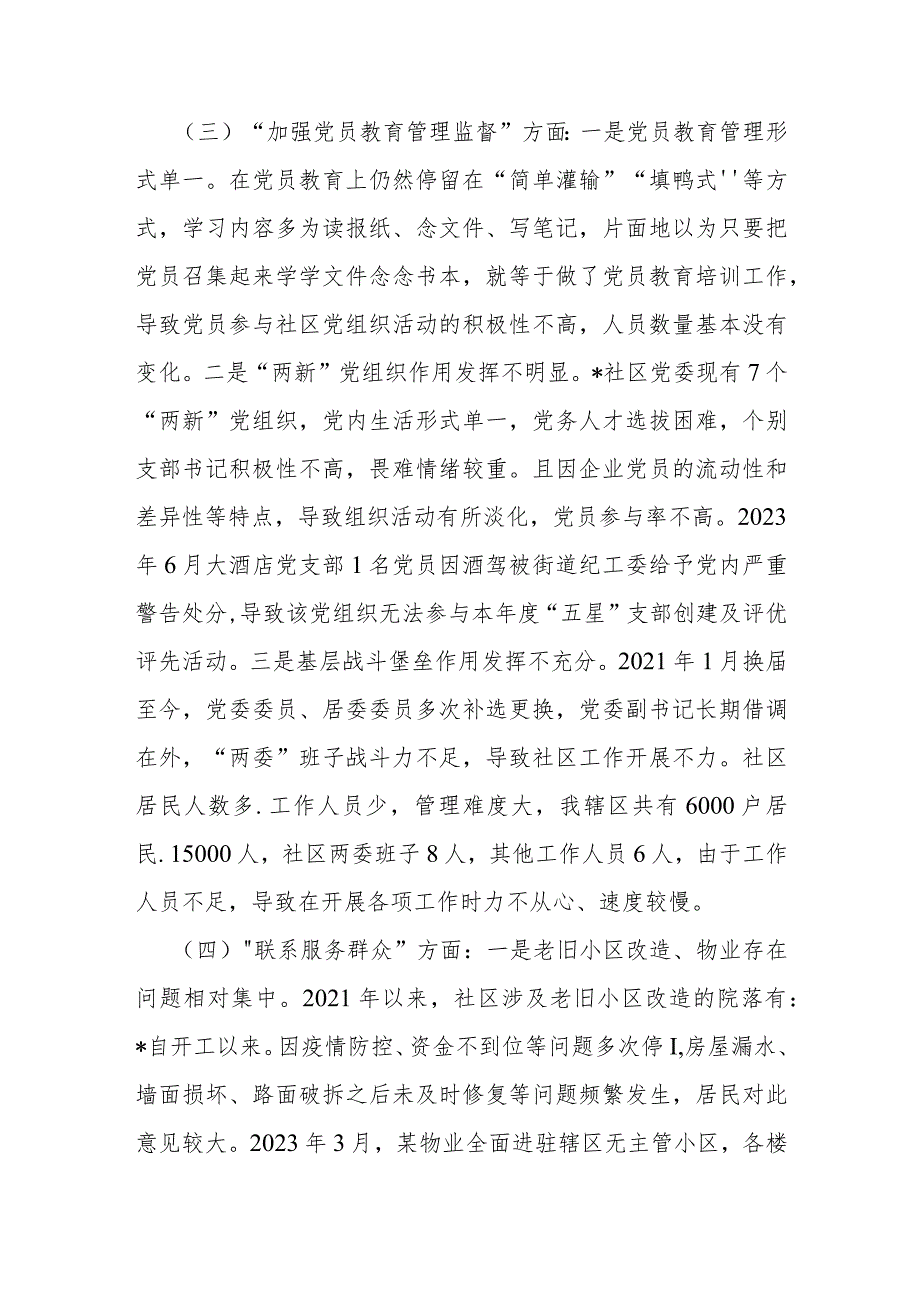 （三）“加强党员教育管理监督”方面：一是党员教育管理形
式单一。在党员教育上仍然停留在“简单灌输”“填鸭式''等方
式，学习内容多为读报纸、念文件、写笔记，片面地以为只要把
党员召集起来学学文件念念书本，就等于做了党员教育培训工作，
导致党员参与社区党组织活动的积极性不高，人员数量基本没有
变化。二是“两新”党组织作用发挥不明显。*社区党委现有7个
“两新”党组织，党内生活形式单一，党务人才选拔困难，个别
支部书记积极性不高，畏难情绪较重。且因企业党员的流动性和
差异性等特点，导致组织活动有所淡化，党员参与率不高。2023
年6月大酒店党支部1名党员因酒驾被街道纪工委给予党内严重
警告处分,导致该党组织无法参与本年度“五星”支部创建及评优
评先活动。三是基层战斗堡垒作用发挥不充分。2021年1月换届
至今，党委委员、居委委员多次补选更换，党委副书记长期借调
在外，“两委”班子战斗力不足，导致社区工作开展不力。社区
居民人数多.工作人员少，管理难度大，我辖区共有6000户居
民.15000人，社区两委班子8人，其他工作人员6人，由于工作
人员不足，导致在开展各项工作时力不从心、速度较慢。
（四）"联系服务群众”方面：一是老旧小区改造、物业存在
问题相对集中。2021年以来，社区涉及老旧小区改造的院落有：
*自开工以来。因疫情防控、资金不到位等问题多次停I,房屋漏水、
墙面损坏、路面破拆之后未及时修复等问题频繁发生，居民对此
意见较大。2023年3月，某物业全面进驻辖区无主管小区，各楼